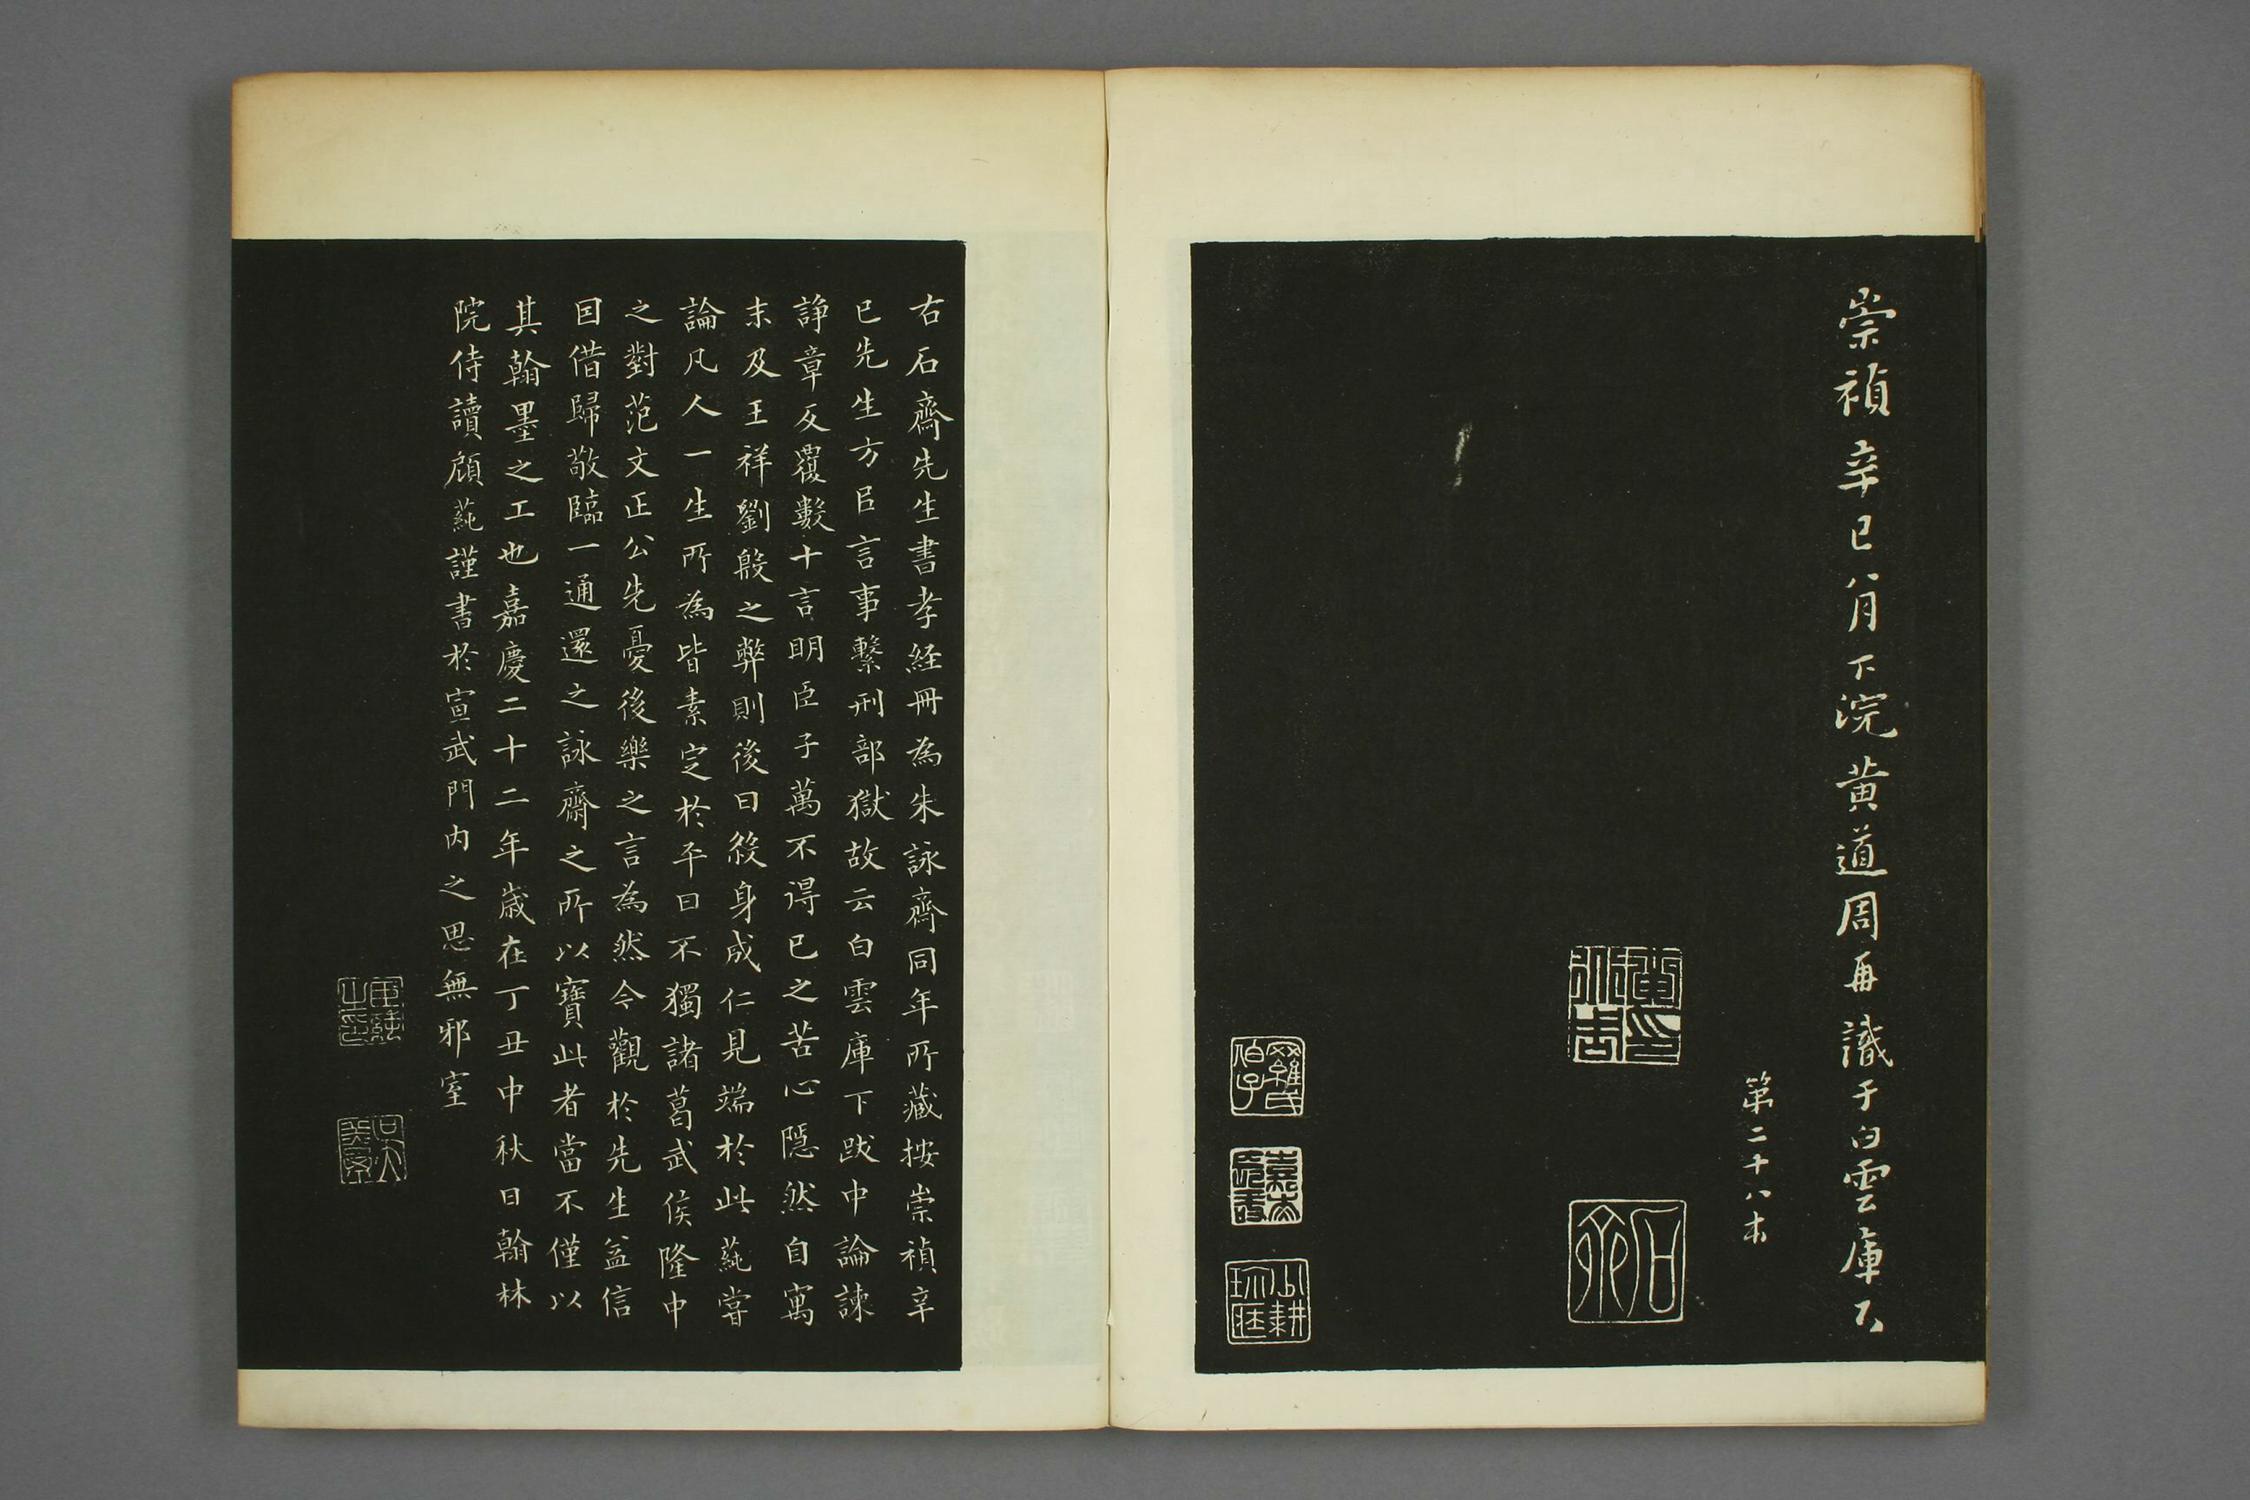 崇禎辛巳八月下浣黃道周再識于白雲庫下
第二十八本
石齋
羅氏伯子
嘉本長壽
山耕珍匧
右石齋先生書孝經冊為朱詠齋同年所藏按崇禎辛
巳先生方㠯言事繫刑部獄故云白雲庫下跋中論諫
諍章反覆數十言明臣子萬不得已之苦心隱然自寓
末及王祥劉殷之弊則後日殺身成仁見端於此蒓嘗
論凡人一生所為皆素定於平日不獨諸葛武侯隆中
之對范文正公先憂後樂之言為然今觀於先生益信
因借歸敬臨一通還之詠齋之所以寶此者當不僅以
其翰墨之工也嘉慶二十二年歲在丁丑中秋日翰林
院侍讀顧蒓謹書於宣武門內之思無邪室